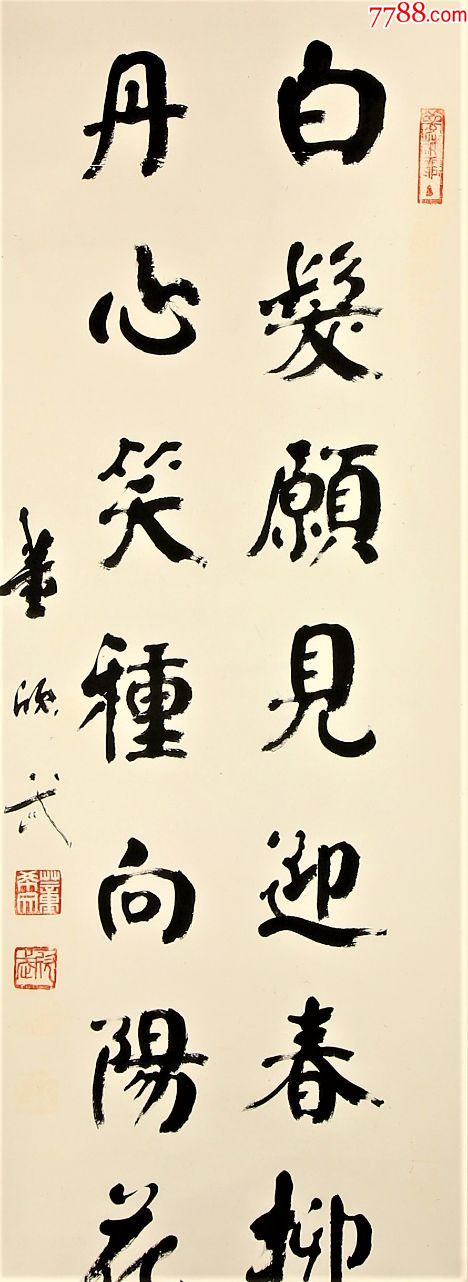 7788.com
白髮願見迎春柳
丹心笑種向陽花
董欣武